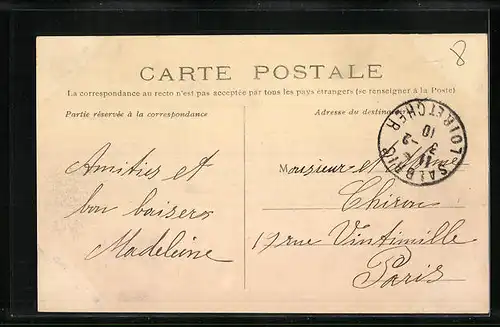 8
CARTE POSTALE
La correspondance au recto n'est pas acceptée par tous les pays étrangers (se renseigner à la Poste)
Partie réservée à la correspondance
Adresse du destinataire
SALBRIS
LOIR ET CHER
3 -2
10
Amitiés et
bon baisers
Madeleine
Monsieur et Mme
Chiron
17 rue Vintimille
Paris